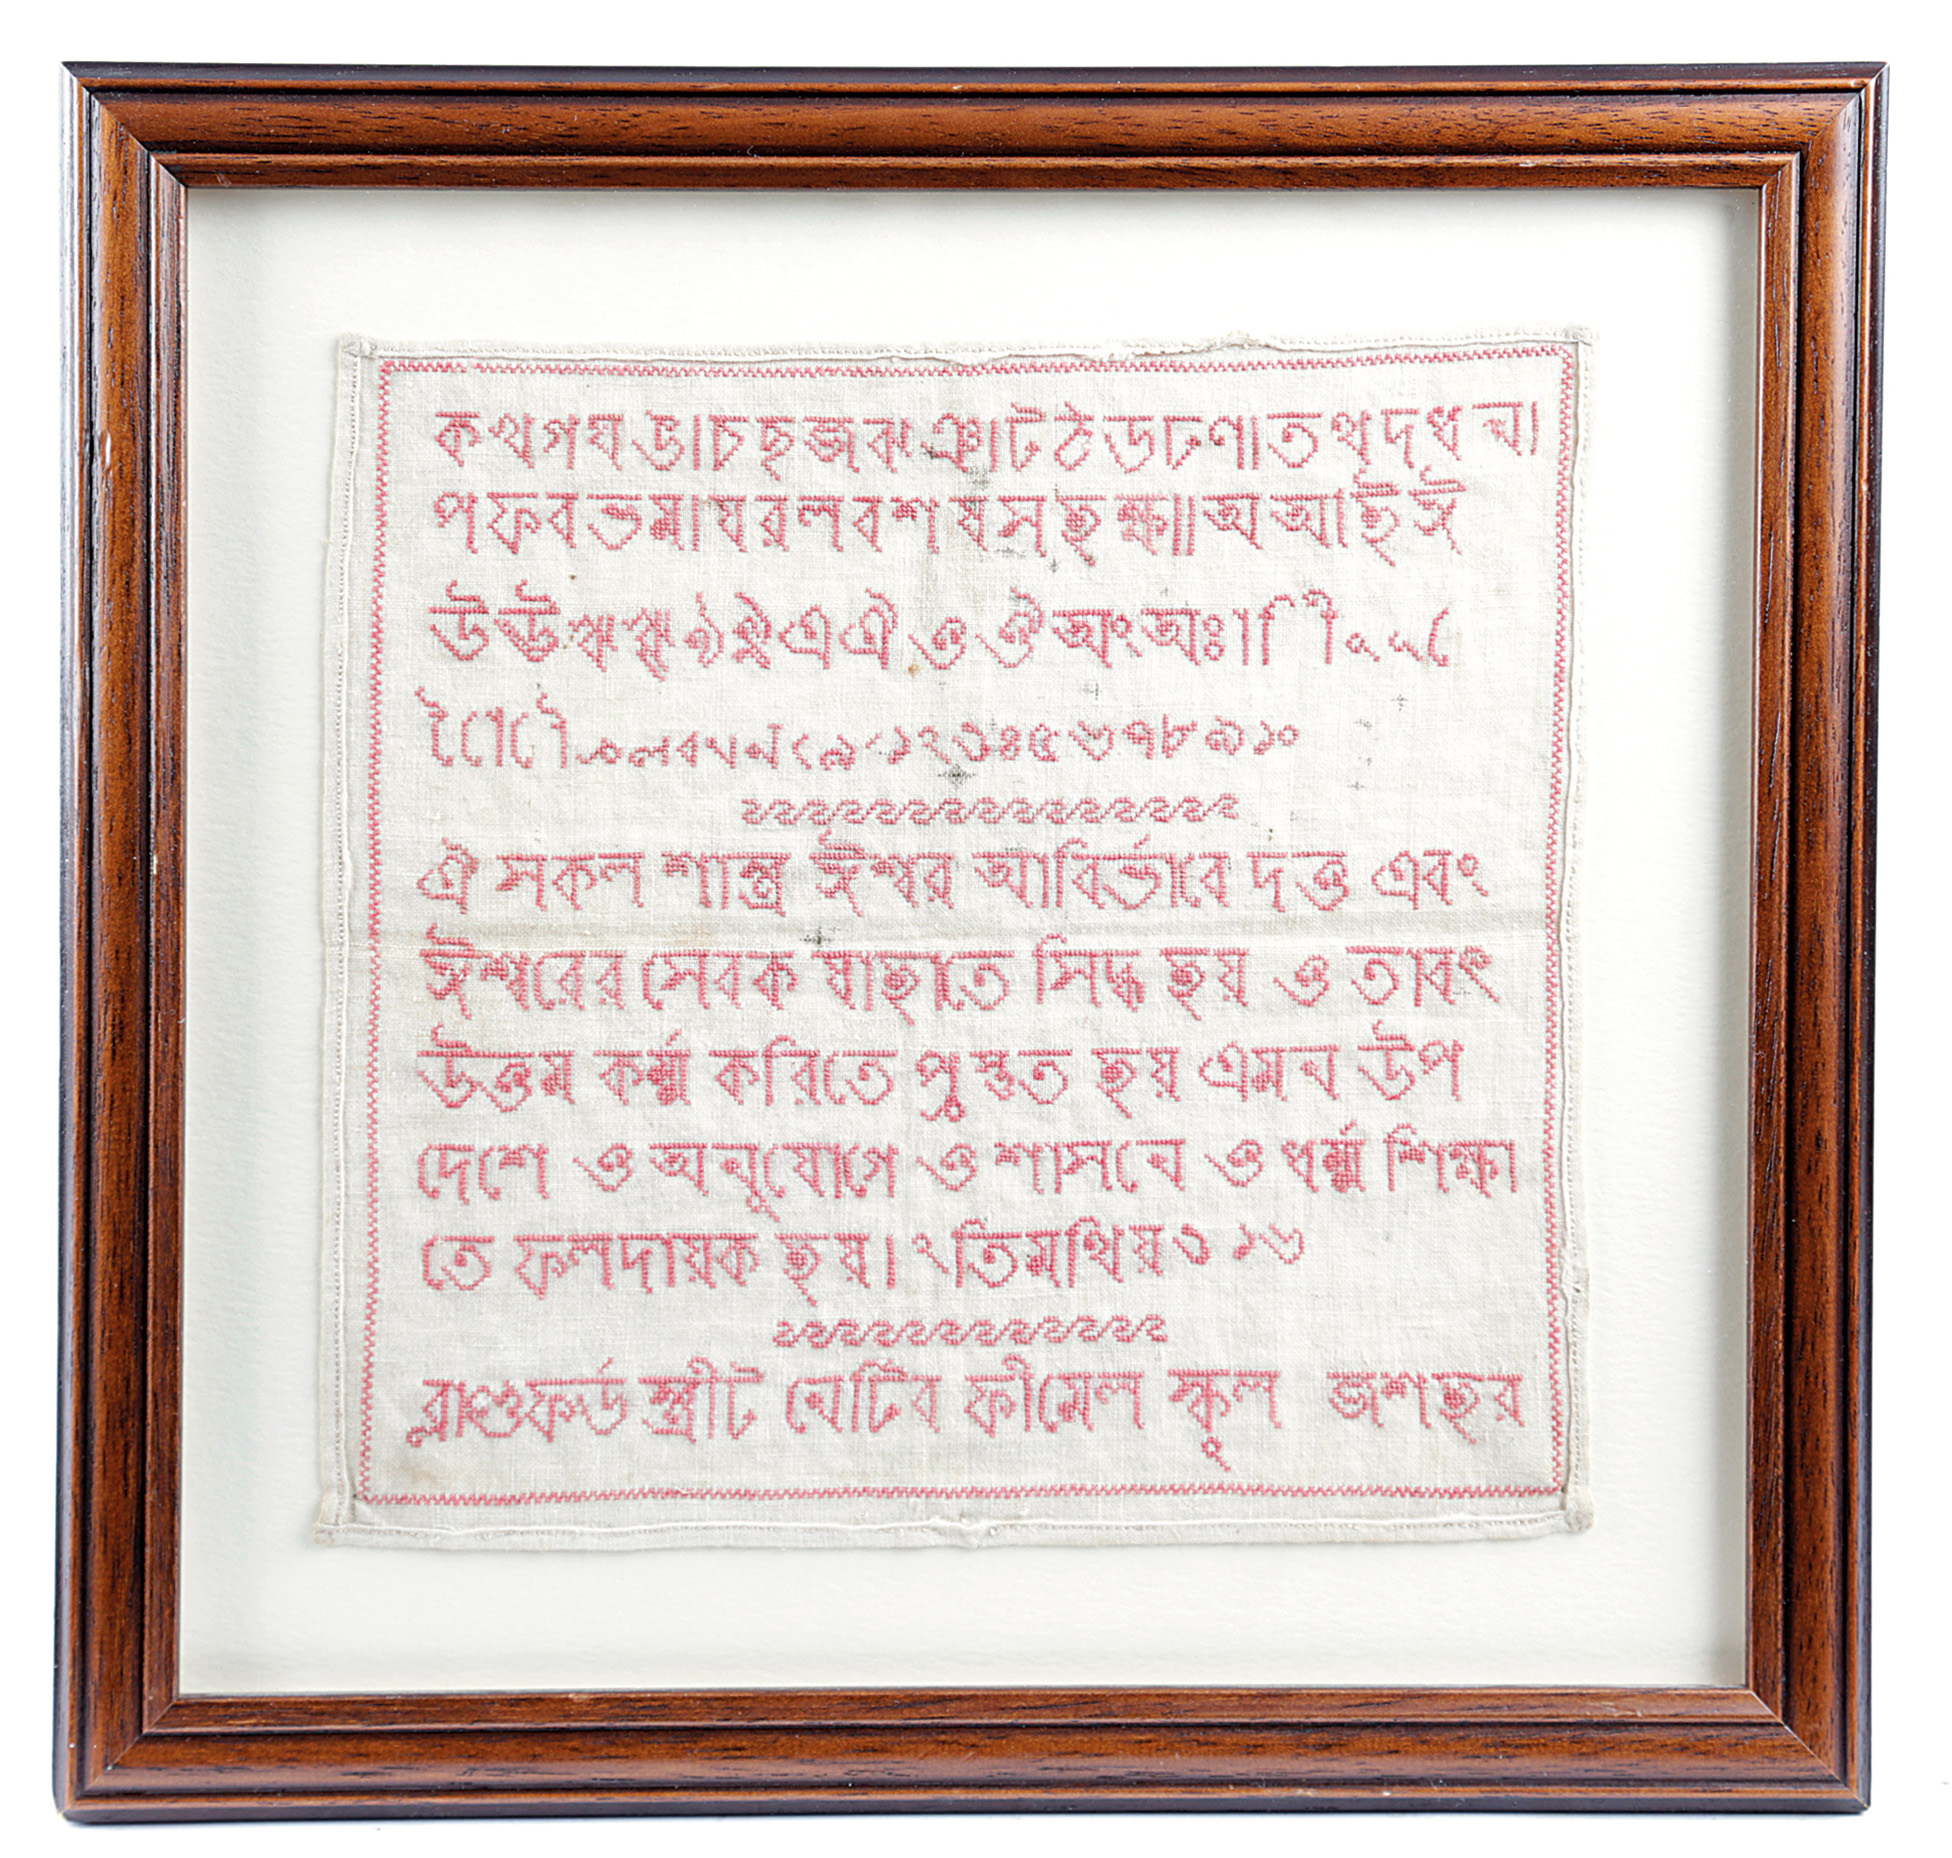 ক খ গ ঘ ঙ । চ ছ জ ঝ ঞ । ট ঠ ড ঢ ণ । ত থ দ ধ ন ।
প ফ ব ভ ম । য র ল ব শ ষ স হ ক্ষ ॥ অ আ ই ঈ
উ ঊ ঋ ৠ ঌ ৡ এ ঐ ও ঔ অং অঃ । া ি ী ু ূ ে
১ ২ ৩ ৪ ৫ ৬ ৭ ৮ ৯ ১০
ঐ সকল শাস্ত্র ঈশ্বর আবির্ভাবে দত্ত এবং
ঈশ্বরের সেবক যাহাতে সিদ্ধ হয় ও তাবৎ
উত্তম কর্ম্ম করিতে প্রস্তুত হয় এমন উপ
দেশে ও অনুযোগে ও শাসনে ও ধর্ম্ম শিক্ষা
তে ফলদায়ক হয় । ২ তিমথিয় ৩ ১৬
ব্রাণ্ডফর্ড স্ত্রীট নেটিব ফীমেল স্কূল জশহর